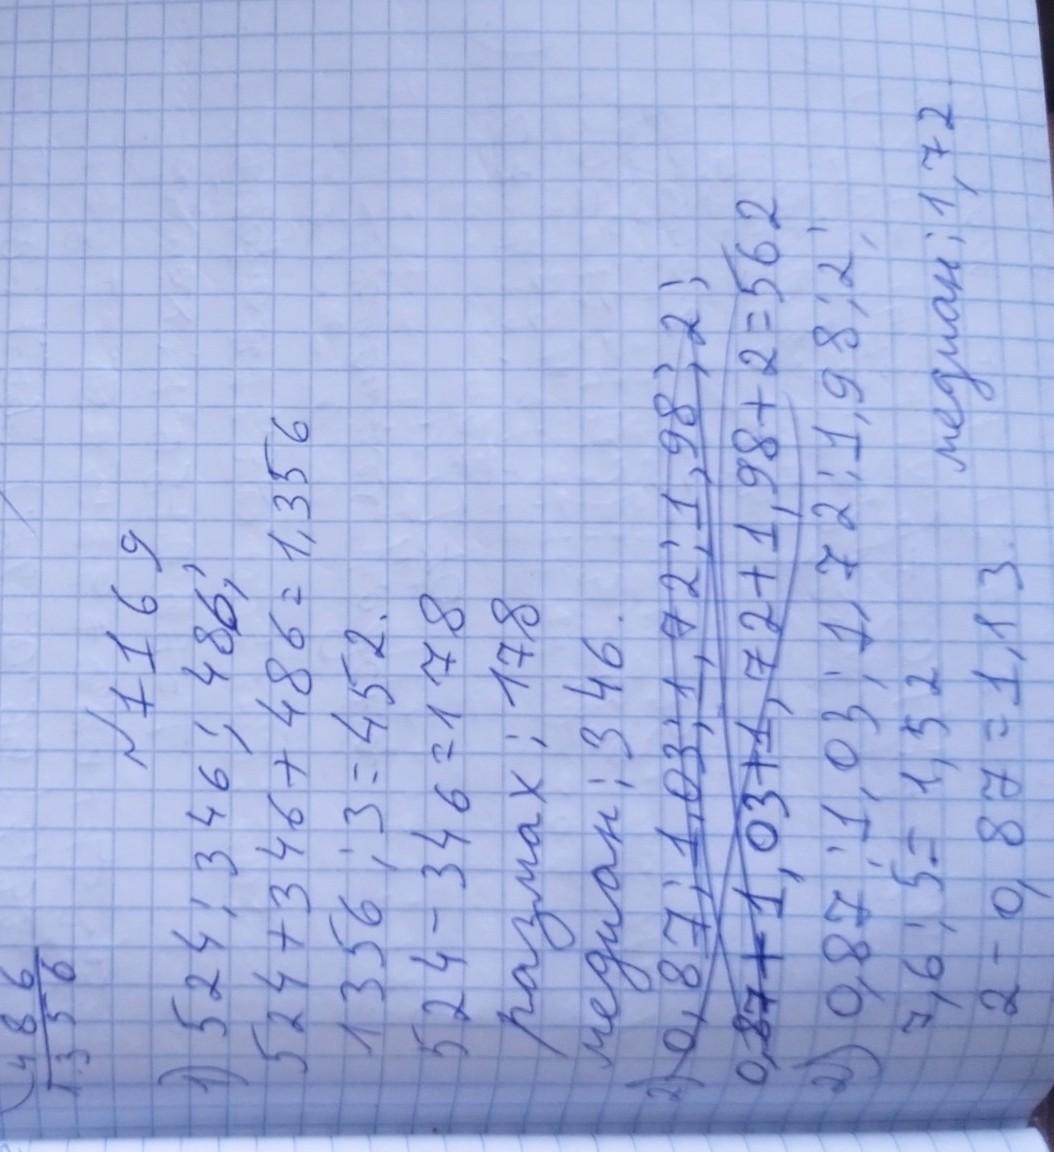 486
1356
№1169
1) 524; 346; 486;
524+346+486=1,356
1356:3=452.
524-346=178
размах: 178
медиан: 346.
2) 0,87; 1,03; 1,72; 1,98; 2;
0,87+1,03+1,72+1,98+2=562
2) 0,87; 1,03; 1,72; 1,98; 2;
7,6:5=1,52
медиан: 1,72
2-0,87=1,13.